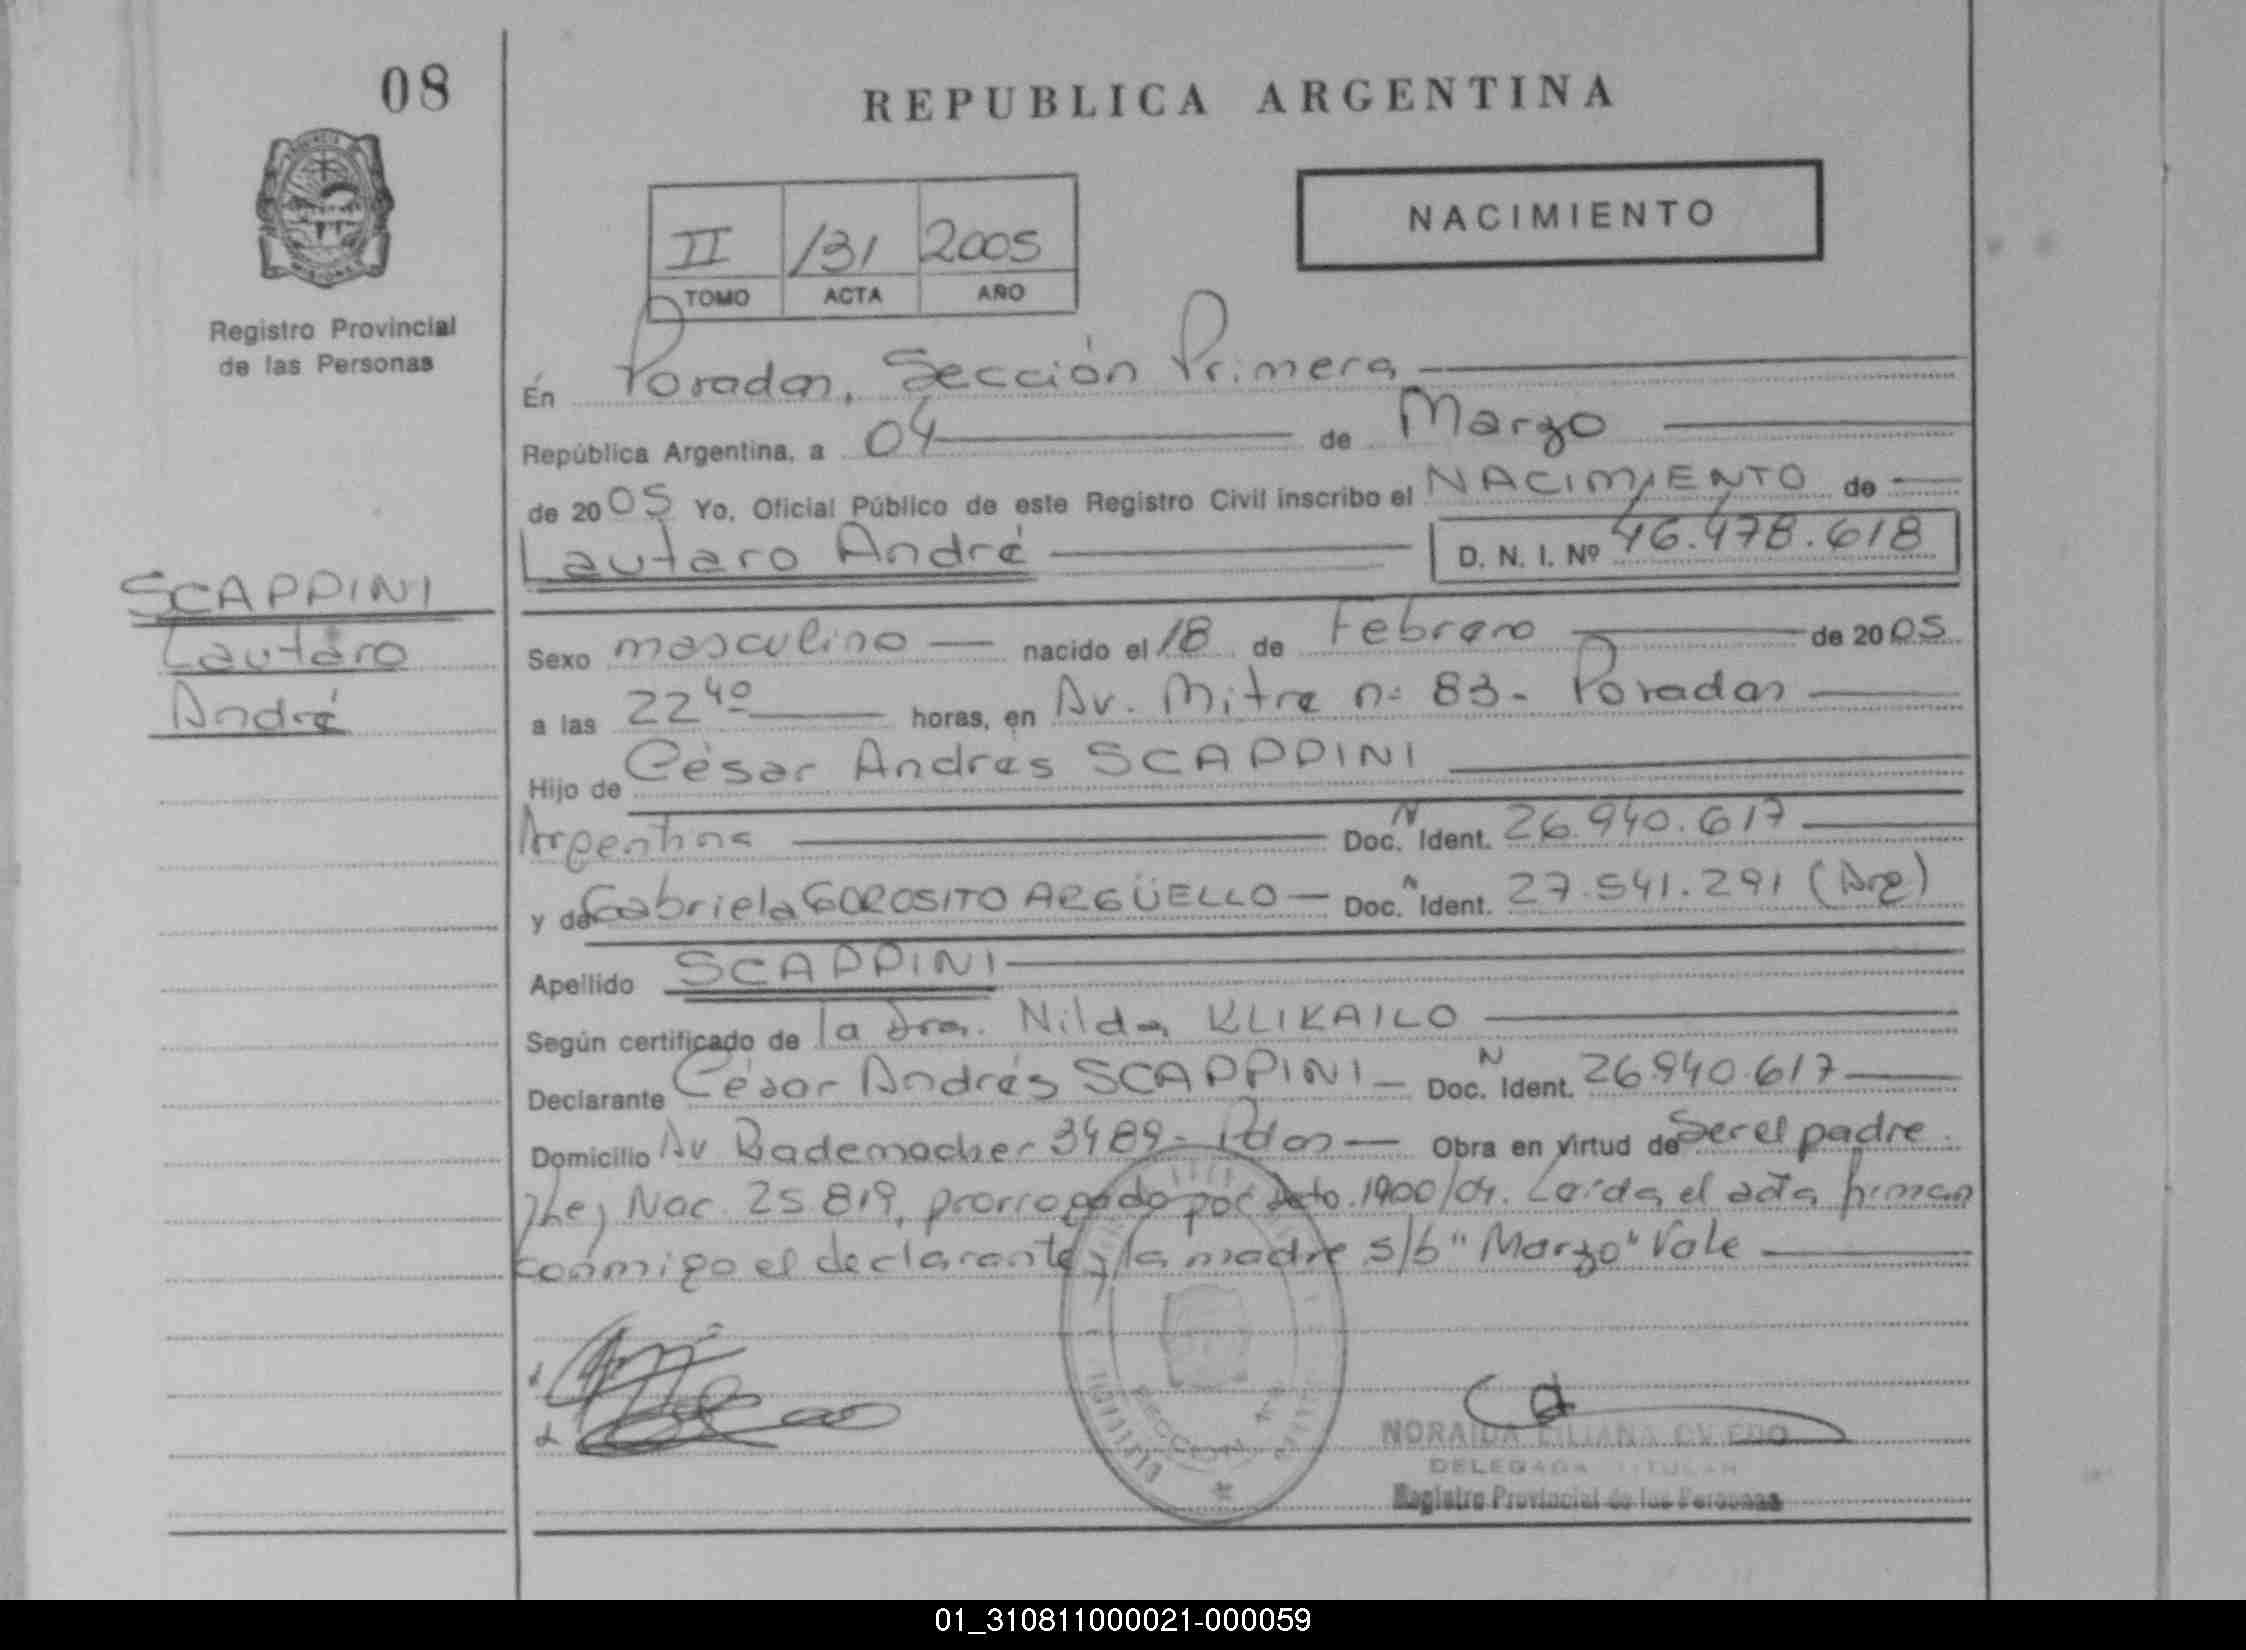 08
REPUBLICA ARGENTINA
NACIMIENTO
II /31 2005
TOMO ACTA AÑO
Registro Provincial
de las Personas
En Posadas, Sección Primera
República Argentina, a 04 de Marzo
de 2005 Yo, Oficial Público de este Registro Civil inscribo el NACIMIENTO de
Lautaro André D. N. I. Nº 46.478.618
SCAPPINI
Lautaro
André
Sexo masculino nacido el 18 de Febrero de 2005
a las 22 40 horas, en Av. Mitre nº 83 - Posadas
Hijo de César Andrés SCAPPINI
Argentina Doc. N Ident. 26.940.617
y de Gabriela GOROSITO ARGÜELLO Doc. N Ident. 27.541.291 (Arg)
Apellido SCAPPINI
Según certificado de la Dra. Nilda KLIKAILO
Declarante César Andrés SCAPPINI Doc. N Ident. 26.940.617
Domicilio Av Rademacher 3489 - Pdas Obra en virtud de Ser el padre.
y Ley Nac. 25 819, prorrogado por Dcto. 1900/04. Leída el acta firman
conmigo el declarante y la madre s/b "Marzo" Vale
SECCION
NORAIDA LILIANA OVIEDO
DELEGADA TITULAR
Registro Provincial de las Personas
01_310811000021-000059